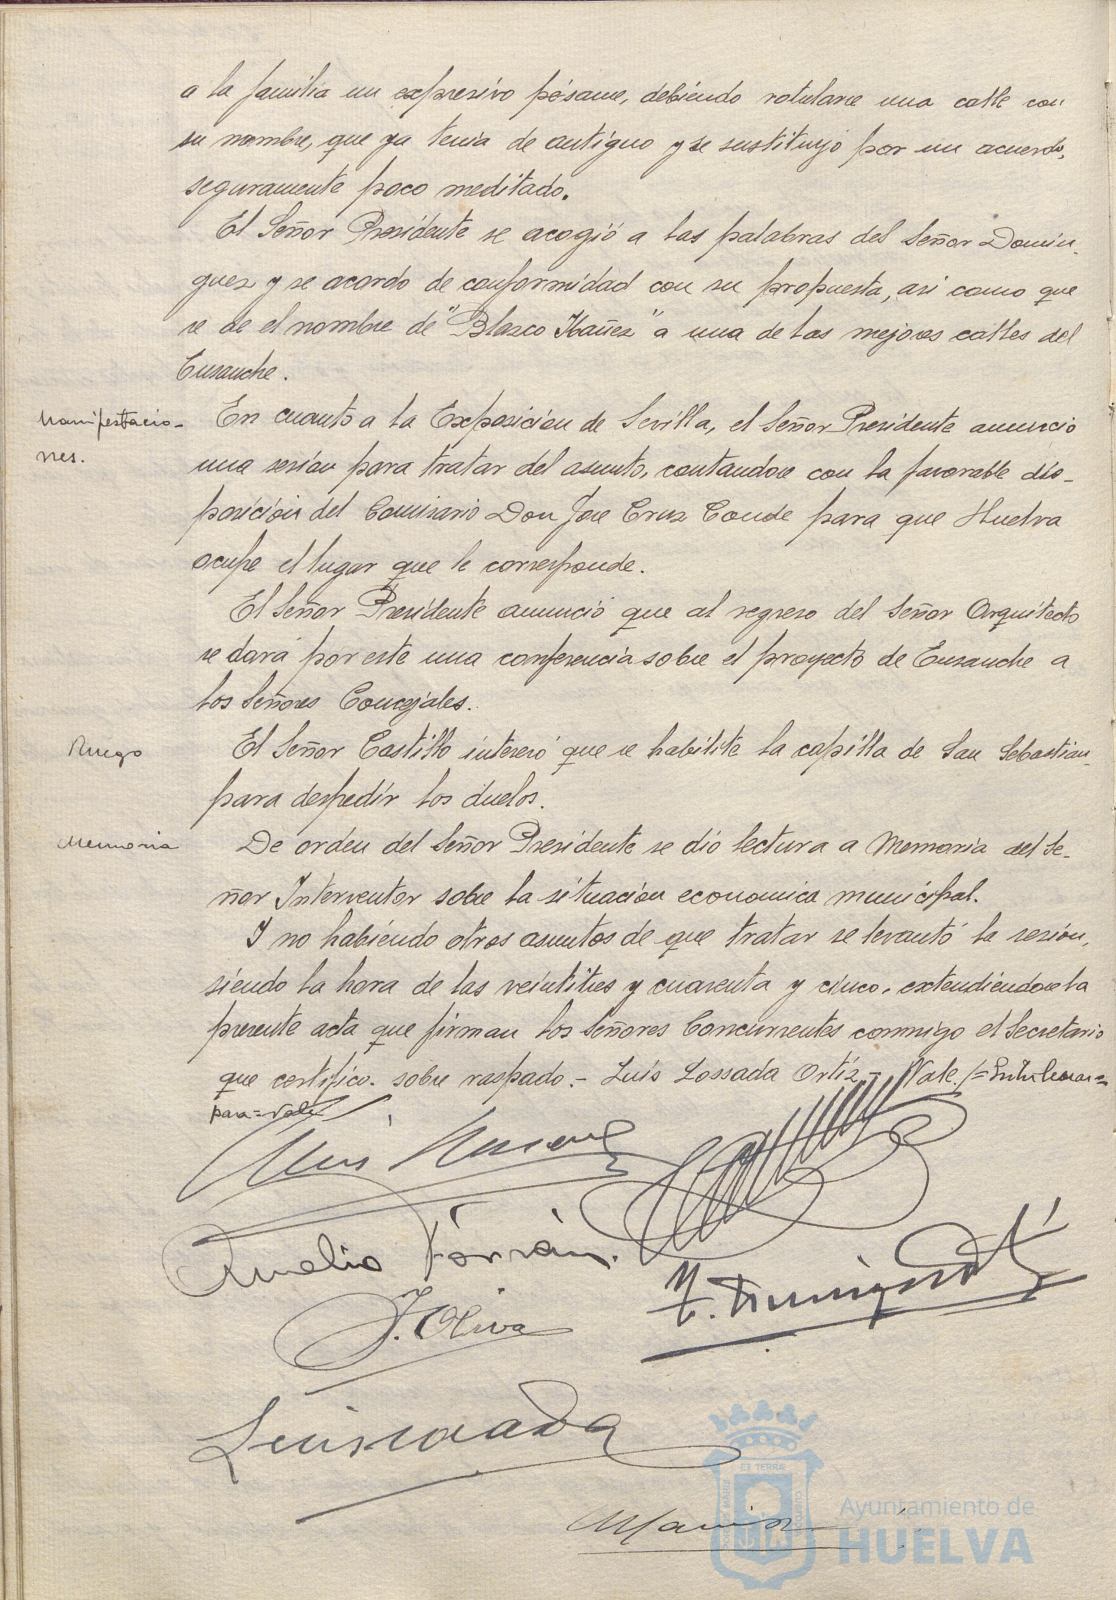 a la familia un expresivo pésame, debiendo rotularse una calle con
su nombre, que ya tenia de antiguo y se sustituyó por un acuerdo,
seguramente poco meditado.
El Señor Presidente se acogió a las palabras del Señor Domin-
guez y se acordo de conformidad con su propuesta, asi como que
se de el nombre de "Blasco Ibañez" a una de las mejores calles del
Ensanche.
Manifestacio-
nes.
En cuanto a la Exposicion de Sevilla, el Señor Presidente anuncio
una sesion para tratar del asunto, contandose con la favorable dis-
posicion del Comisario Don Jose Cruz Conde para que Huelva
ocupe el lugar que le corresponde.
El Señor Presidente anunció que al regreso del Señor Arquitecto
se dará por este una conferencia sobre el proyecto de Ensanche a
los Señores Concejales.
Ruego
El Señor Castillo interesó que se habilite la capilla de San Sebastian
para despedir los duelos.
Memoria
De orden del Señor Presidente se dió lectura a Memoria del Se-
ñor Interventor sobre la situacion economica municipal.
Y no habiendo otros asuntos de que tratar se levantó la sesion,
siendo la hora de las veintitres y cuarenta y cinco, extendiendose la
presente acta que firman los Señores Concurrentes conmigo el Secretario
que certifico. sobre raspado.- Luis Lossada Ortiz - Vale./=
para=vale
J. Oliva
ET TERRAE
Ayuntamiento de
HUELVA